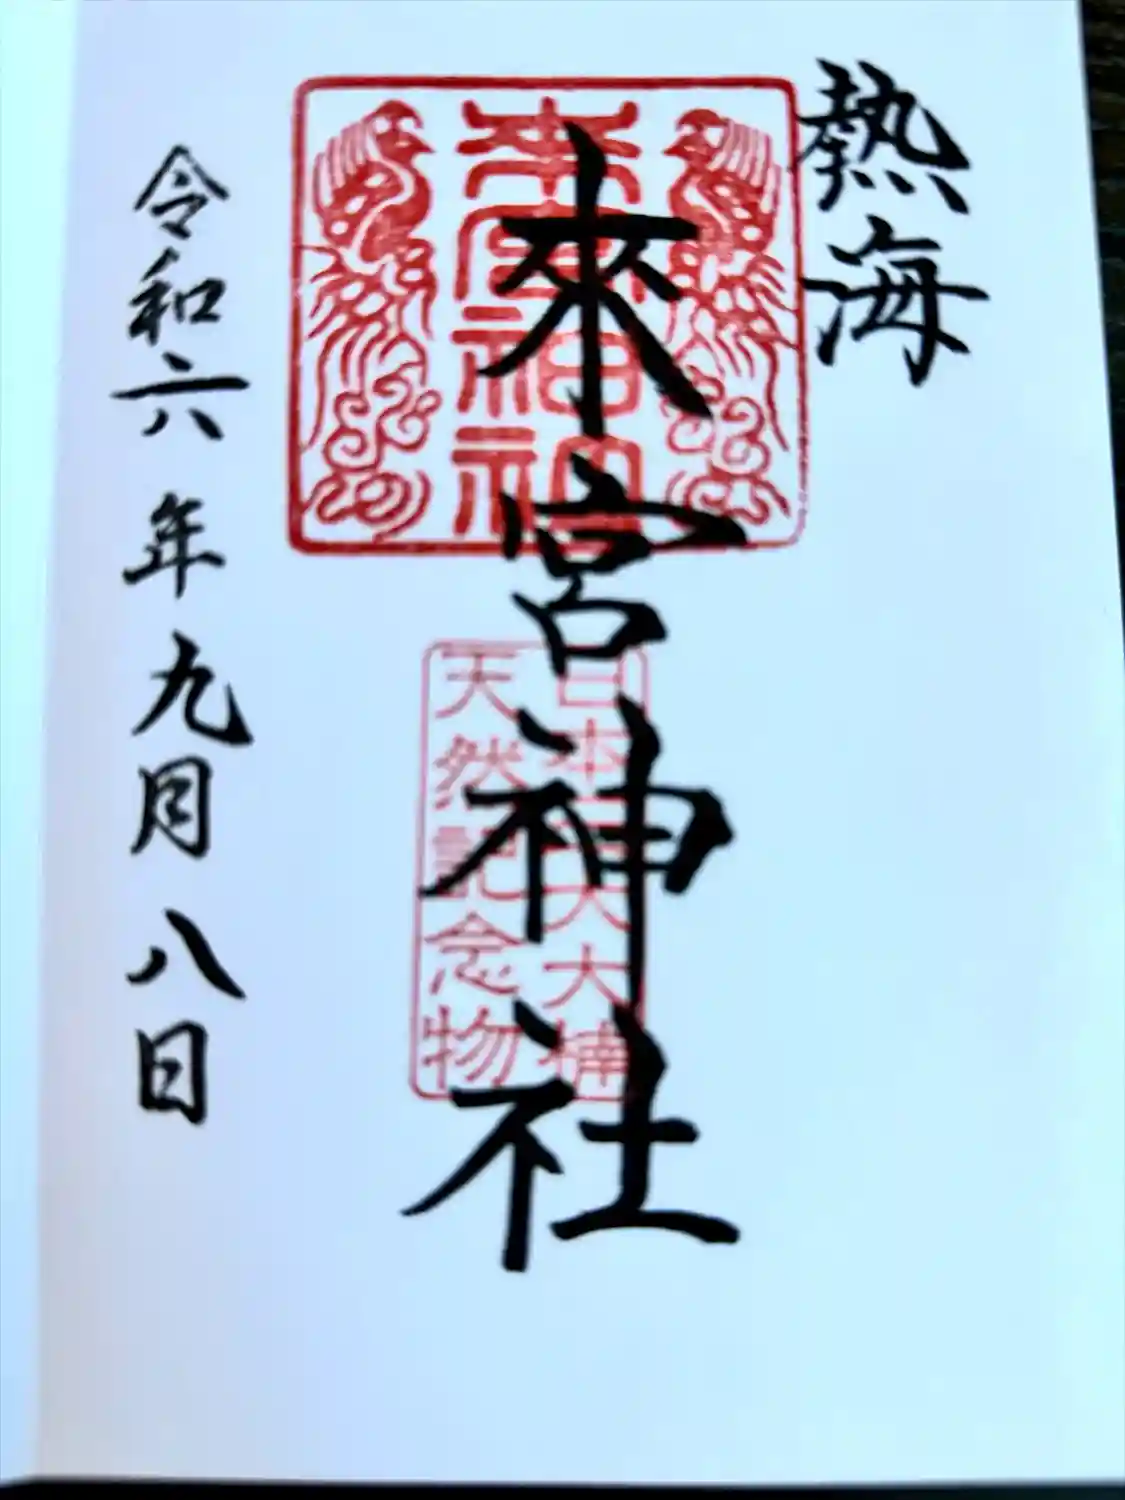 熱海
來宮神社
来宮神社神
日本三大大楠
天然記念物
令和六年九月八日